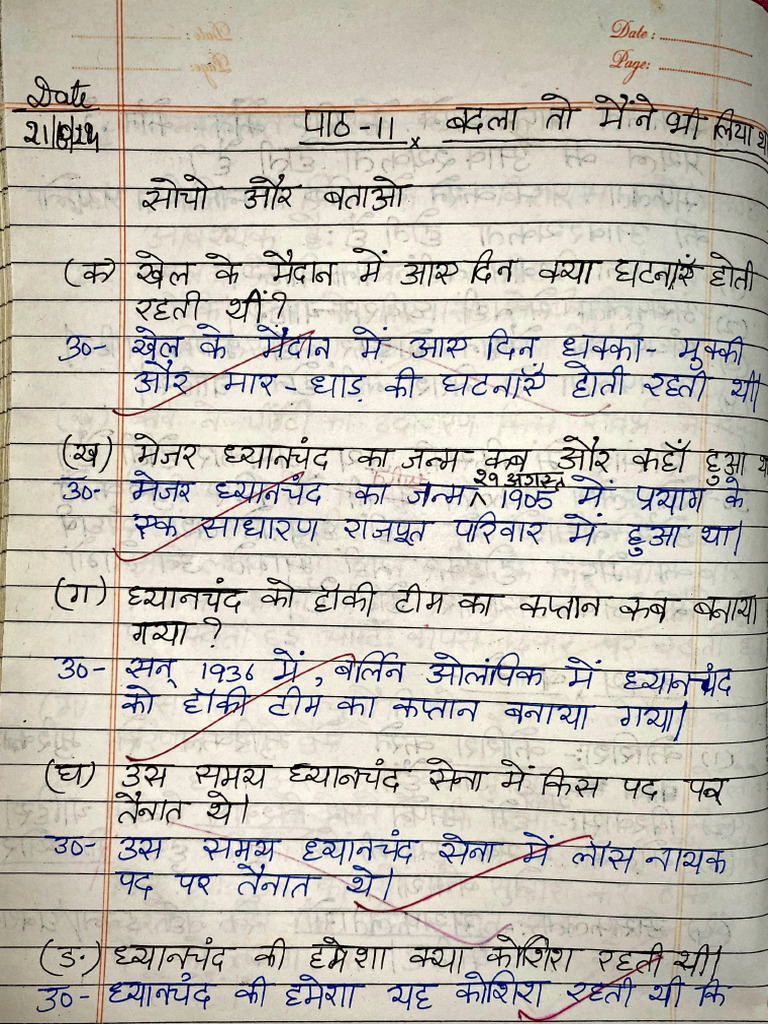 Date : ..................
Page: ..................
Date
पाठ -11 × बदला तो मैंने भी लिया था
सोचो और बताओ
(क) खेल के मैदान में आए दिन क्या घटनाएँ होती
रहती थीं?
उ०- खेल के मैदान में आए दिन धक्का - मुक्की
और मार - धाड़ की घटनाएँ होती रहती थी।
(ख) मेजर ध्यानचंद का जन्म कब और कहाँ हुआ था
२९ अगस्त
उ०- मेजर ध्यानचंद का जन्म ^ 1905 में प्रयाग के
एक साधारण राजपूत परिवार में हुआ था।
(ग) ध्यानचंद को हॉकी टीम का कप्तान कब बनाया
गया ?
उ०- सन् 1936 में, बर्लिन ओलंपिक में ध्यानचंद
को हॉकी टीम का कप्तान बनाया गया।
(घ) उस समय ध्यानचंद सेना में किस पद पर
तैनात थे।
उ०- उस समय ध्यानचंद सेना में लांस नायक
पद पर तैनात थे।
(ङ) ध्यानचंद की हमेशा क्या कोशिश रहती थी।
उ०- ध्यानचंद की हमेशा यह कोशिश रहती थी कि